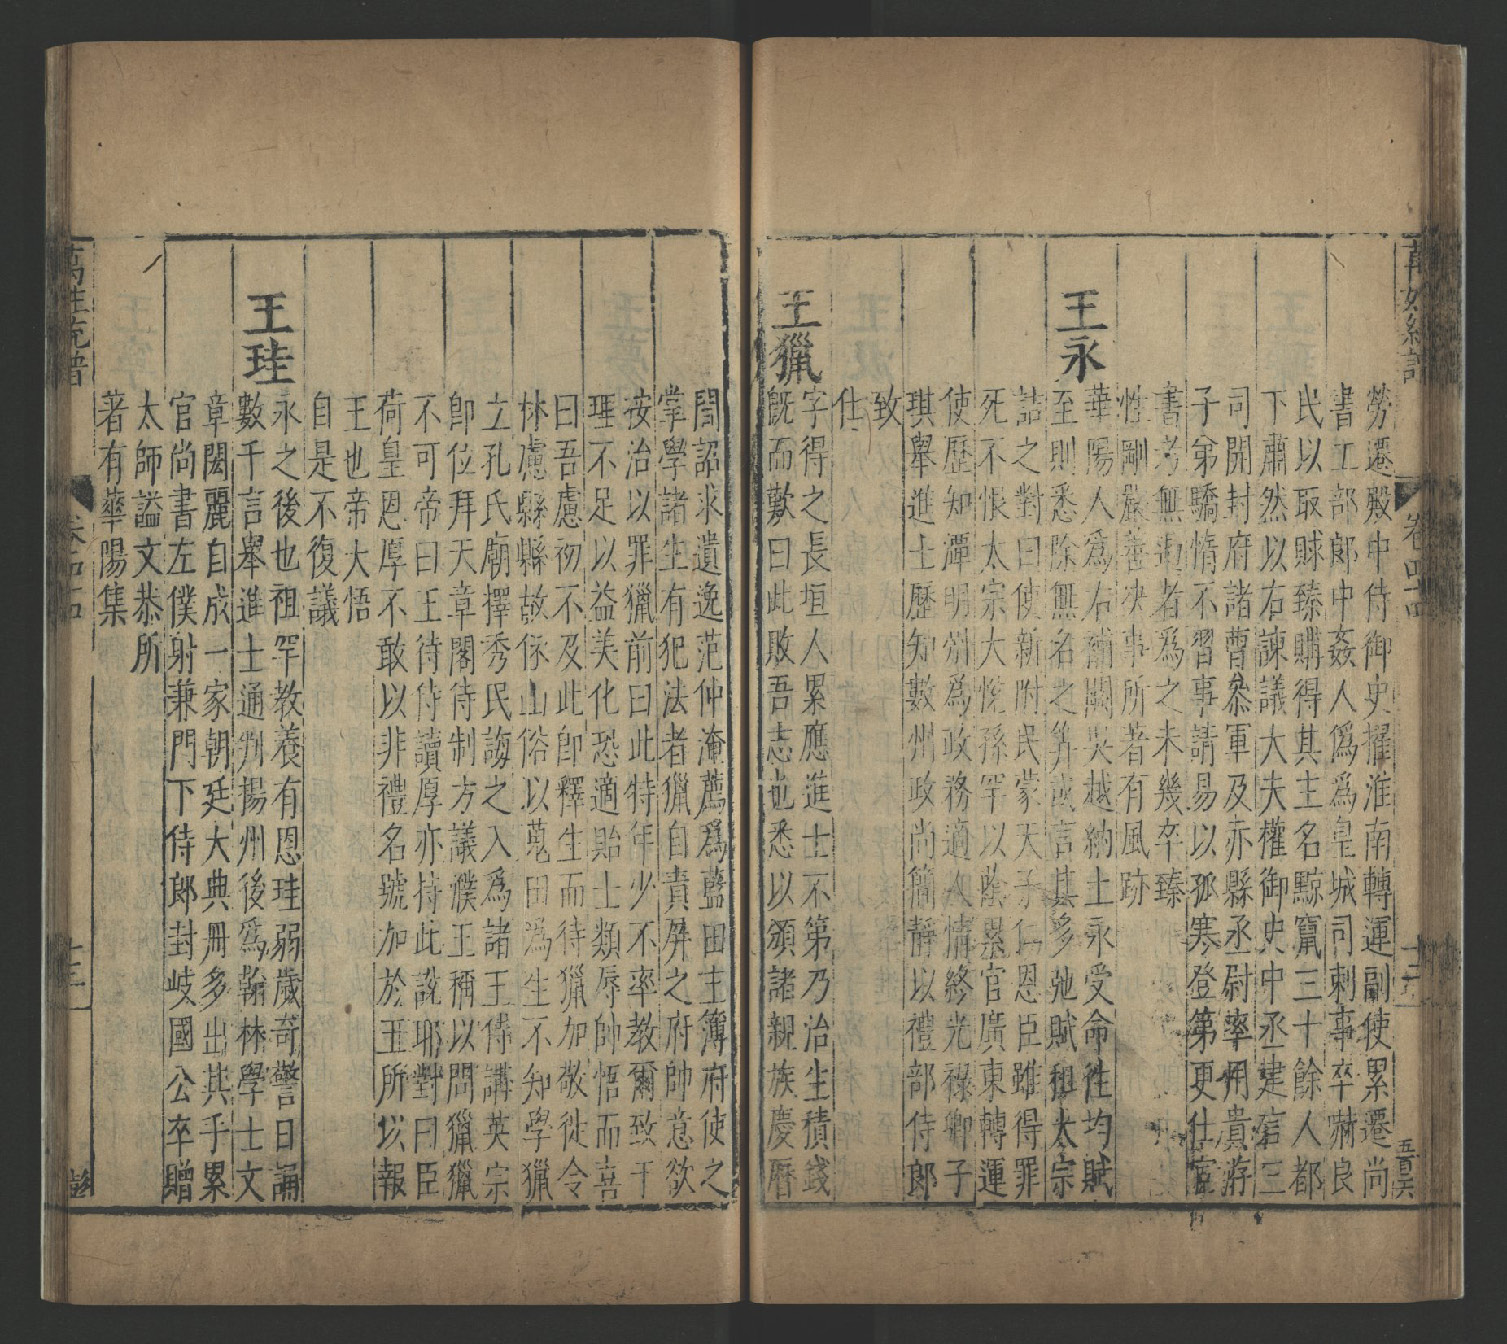 萬姓統譜
卷四十四
十二
五百六
勞遷殿中侍御史擢淮南轉運副使累遷尚
書工部郎中姦人僞爲皇城司刺事卒嚇良
民以取賕臻購得其主名黥竄三十餘人都
下肅然以右諫議大夫權御史中丞建言三
司開封府諸曹叅軍及赤縣丞尉率用貴游
子弟驕惰不習事請易以孤寒登第更仕宦
書考無過者爲之未幾卒臻
性剛嚴善决事所著有風跡
王永
華陽人爲右補闕吳越納土永受命往均賦
至則悉除無名之筭或言其多弛賦租太宗
詰之對曰使新附民蒙天子仁恩臣雖得罪
死不恨太宗大悅孫罕以蔭累官廣東轉運
使歷知潭明州爲政務適人情終光祿卿子
琪舉進士歷知數州政尚簡靜以禮部侍郎
致
仕
王獵
字得之長垣人累應進士不第乃治生積錢
旣而歎曰此敗吾志也悉以頒諸親族慶曆
間詔求遺逸范仲淹薦爲藍田主簿府使之
掌學諸生有犯法者獵自責屏之府帥意欲
按治以罪獵前曰此特年少不率教爾致于
理不足以益美化恐適貽士類辱帥悟而喜
曰吾慮初不及此卽釋生而待獵加敬徙令
林慮縣縣故依山俗以蒐田爲生不知學獵
立孔氏廟擇秀民誨之入爲諸王傅講英宗
卽位拜天章閣待制方議濮王稱以問獵獵
不可帝曰王待侍讀厚亦持此說耶對曰臣
荷皇恩厚不敢以非禮名號加於王所以報
王也帝大悟
自是不復議
王珪
永之後也祖罕教養有恩珪弱歲奇警日誦
數千言舉進士通判揚州後爲翰林學士文
章閎麗自成一家朝廷大典冊多出其手累
官尚書左僕射兼門下侍郎封岐國公卒贈
太師謚文恭所
著有華陽集
萬姓統譜
十三